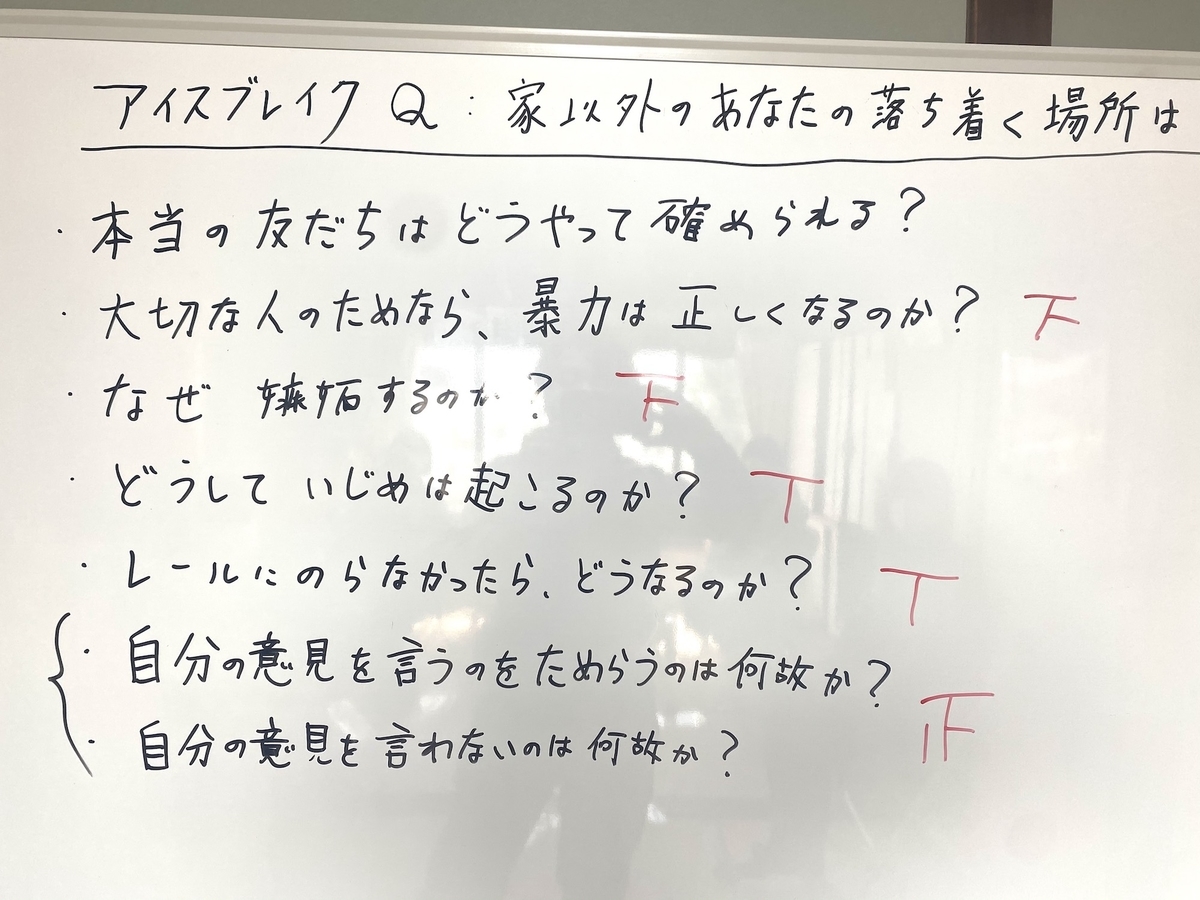 アイスブレイク Q : 家以外のあなたの落ち着く場所は
・本当の友だちは どうやって確められる?
・大切な人のためなら、暴力は 正しくなるのか? 下
・なぜ 嫉妬するのか? 下
・どうして いじめは起こるのか? T
・レールにのらなかったら、どうなるのか? T
・自分の意見を言うのをためらうのは何故か?
・自分の意見を言わないのは 何故か? 正